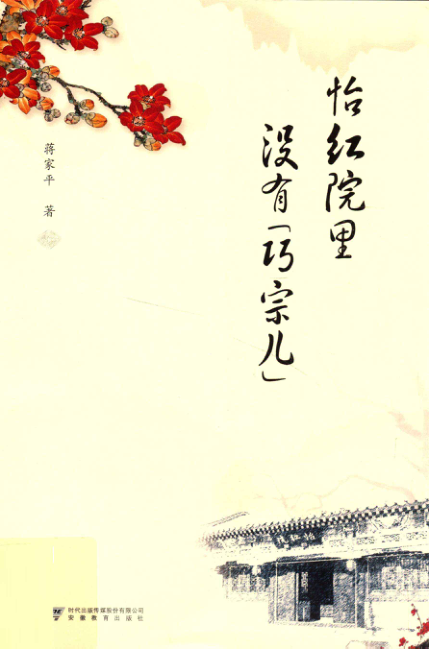 怡红院里
没有「巧宗儿」
蒋家平 著
时代出版传媒股份有限公司
安徽教育出版社